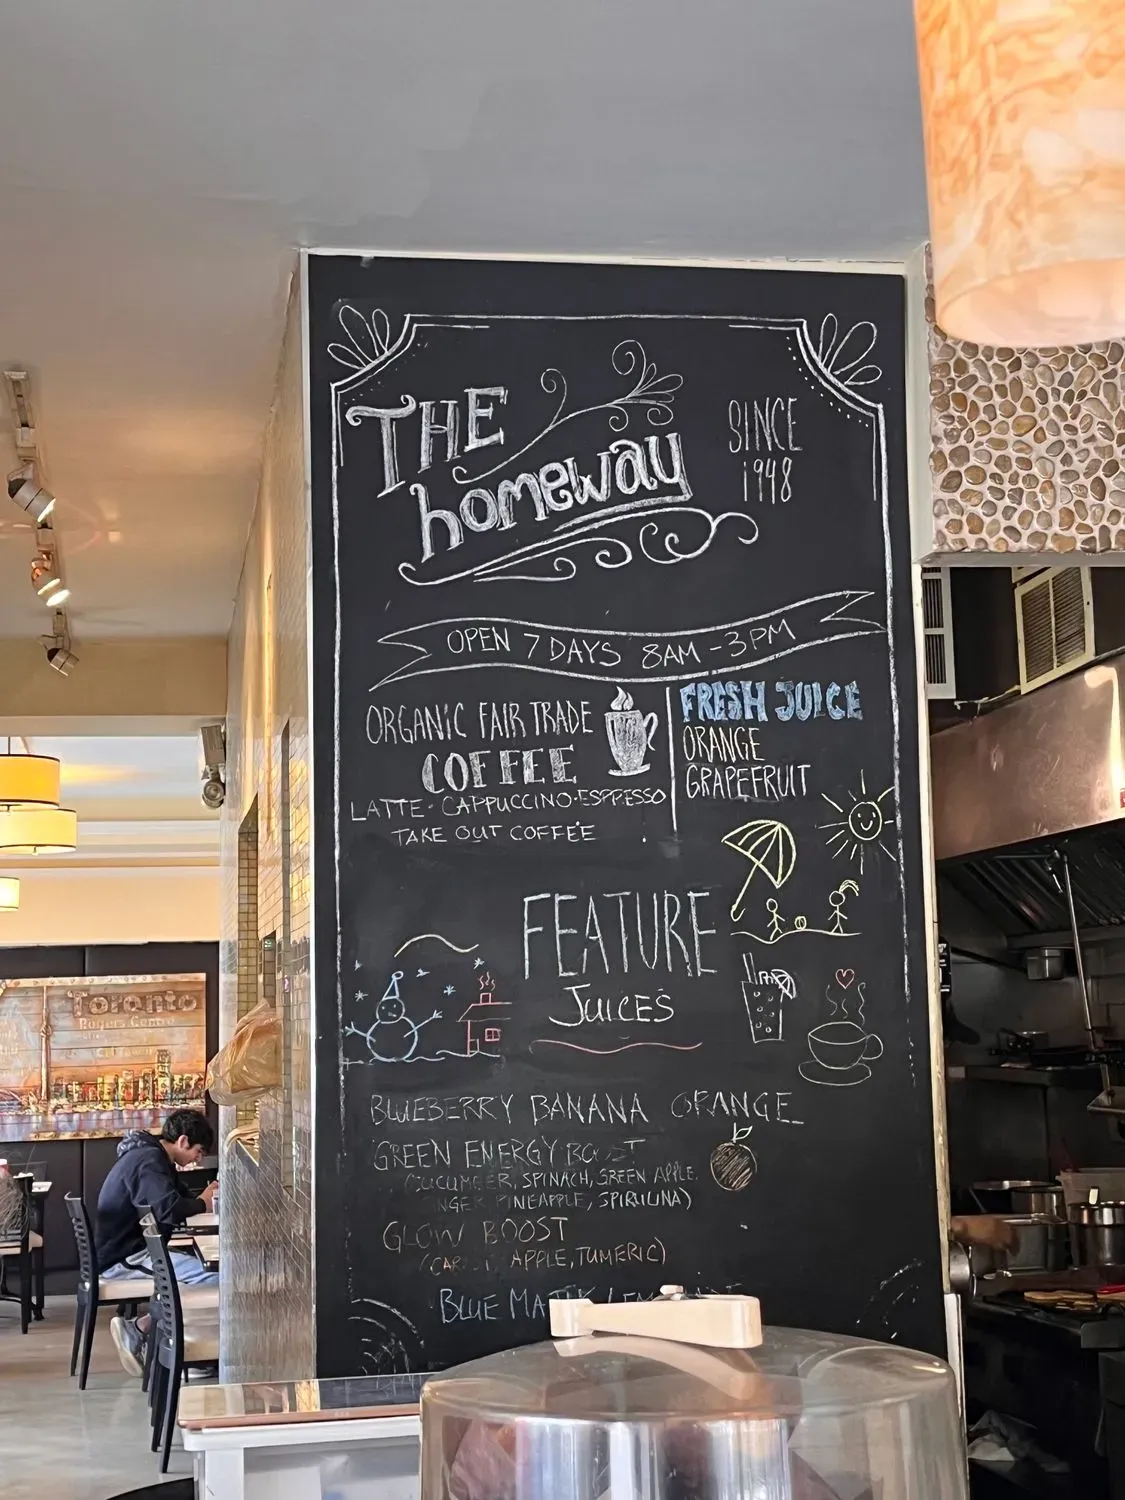 THE
homeway
SINCE
1948
OPEN 7 DAYS 8AM - 3PM
ORGANIC FAIR TRADE
COFFEE
LATTE · CAPPUCCINO · ESPRESSO
TAKE OUT COFFEE
FRESH JUICE
ORANGE
GRAPEFRUIT
FEATURE
JUICES
BLUEBERRY BANANA ORANGE
GREEN ENERGY BOOST
(CUCUMBER, SPINACH, GREEN APPLE,
PINEAPPLE, SPIRULINA)
GLOW BOOST
APPLE, TUMERIC)
BLUE
Toronto
Rogers Centre